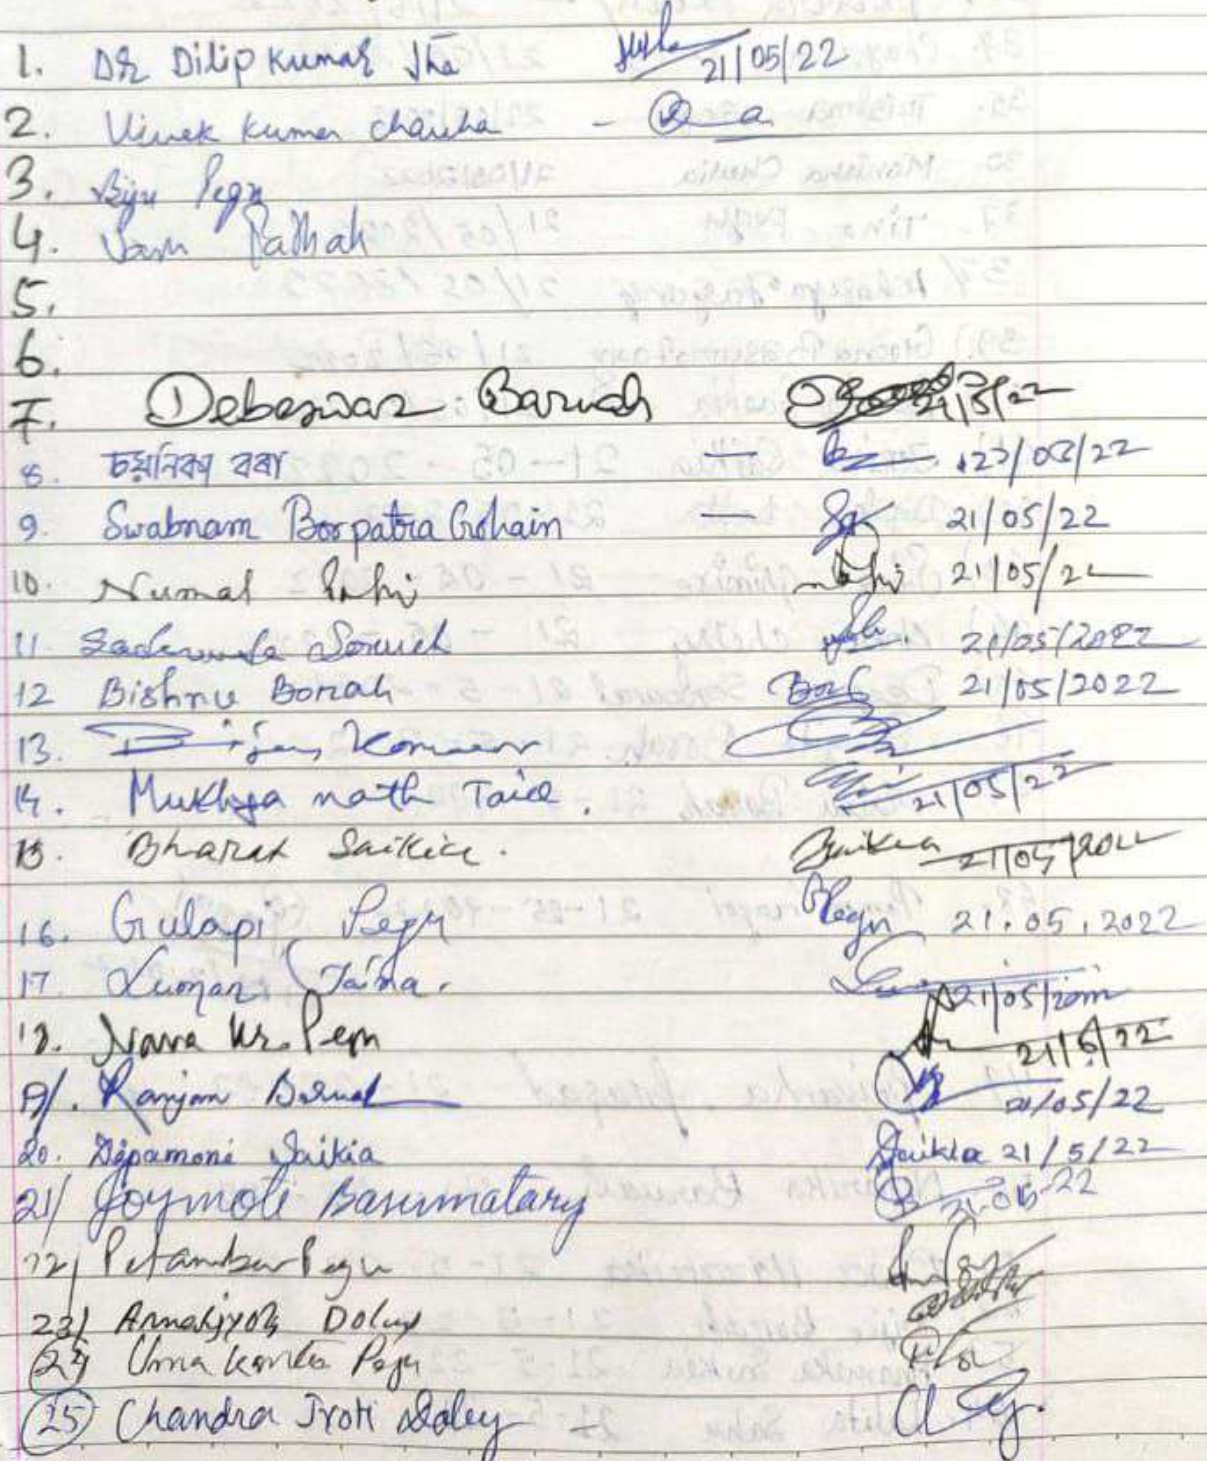 1. DR Dilip Kumar Jha 21/05/22
2. Vivek Kumar -
3. Biju Pegu
4. Pathak
5.
6.
7. Debeswar Baruah 21/5/22
8. চয়নিকা বৰা —
9. Swabnam Borpatra Gohain — 21/05/22
10. Numal 21/05/22
11. 21/05/2022
12 Bishnu Borah 21/05/2022
13.
14. Mukhya nath Taid. 21/05/22
15. Bharat Saikia. Saikia 21/05/2022
16. Gulapi Pegu Pegu 21.05.2022
17. 21/05/2022
18. Nava Kr. Pegu 21/5/22
19/. Ranjan 21/05/22
20. Dipamoni Saikia Saikia 21/5/22
21/ Joymoti Basumatary 21-05-22
22/ Petambar Pegu
23/ Doley
24 Uma Kanta Pegu
25 Chandra Jyoti Doley -